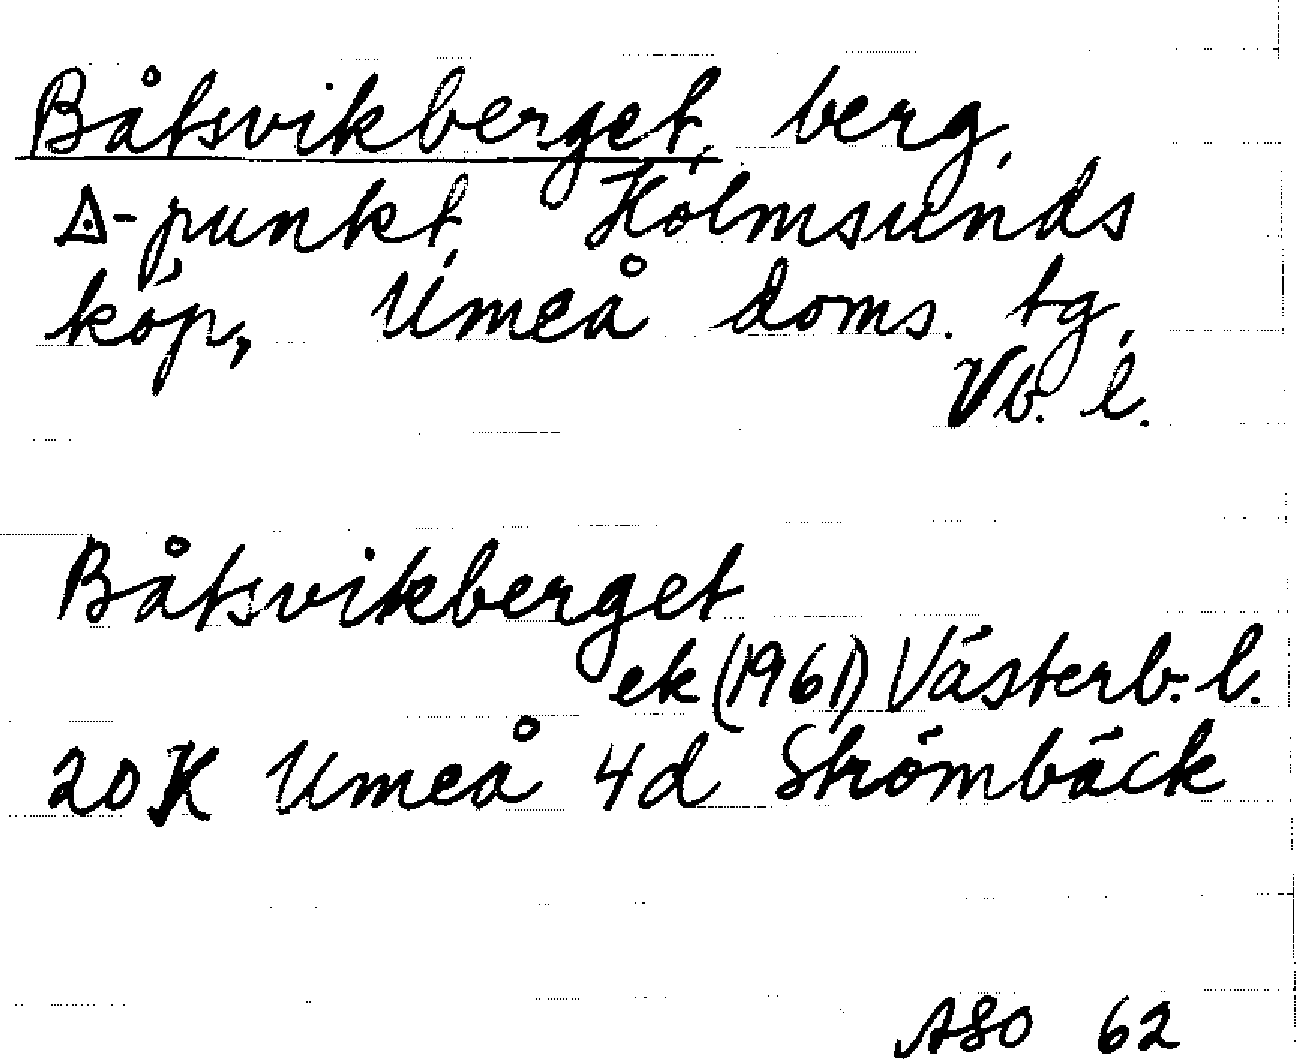 Båtsvikberget, berg,
∆-punkt, Holmsunds
köp, Umeå doms. tg,
Vb. l.
Båtsvikberget
ek (1961) Västerb. l.
20 K Umeå 4d Strömbäck
ASO 62